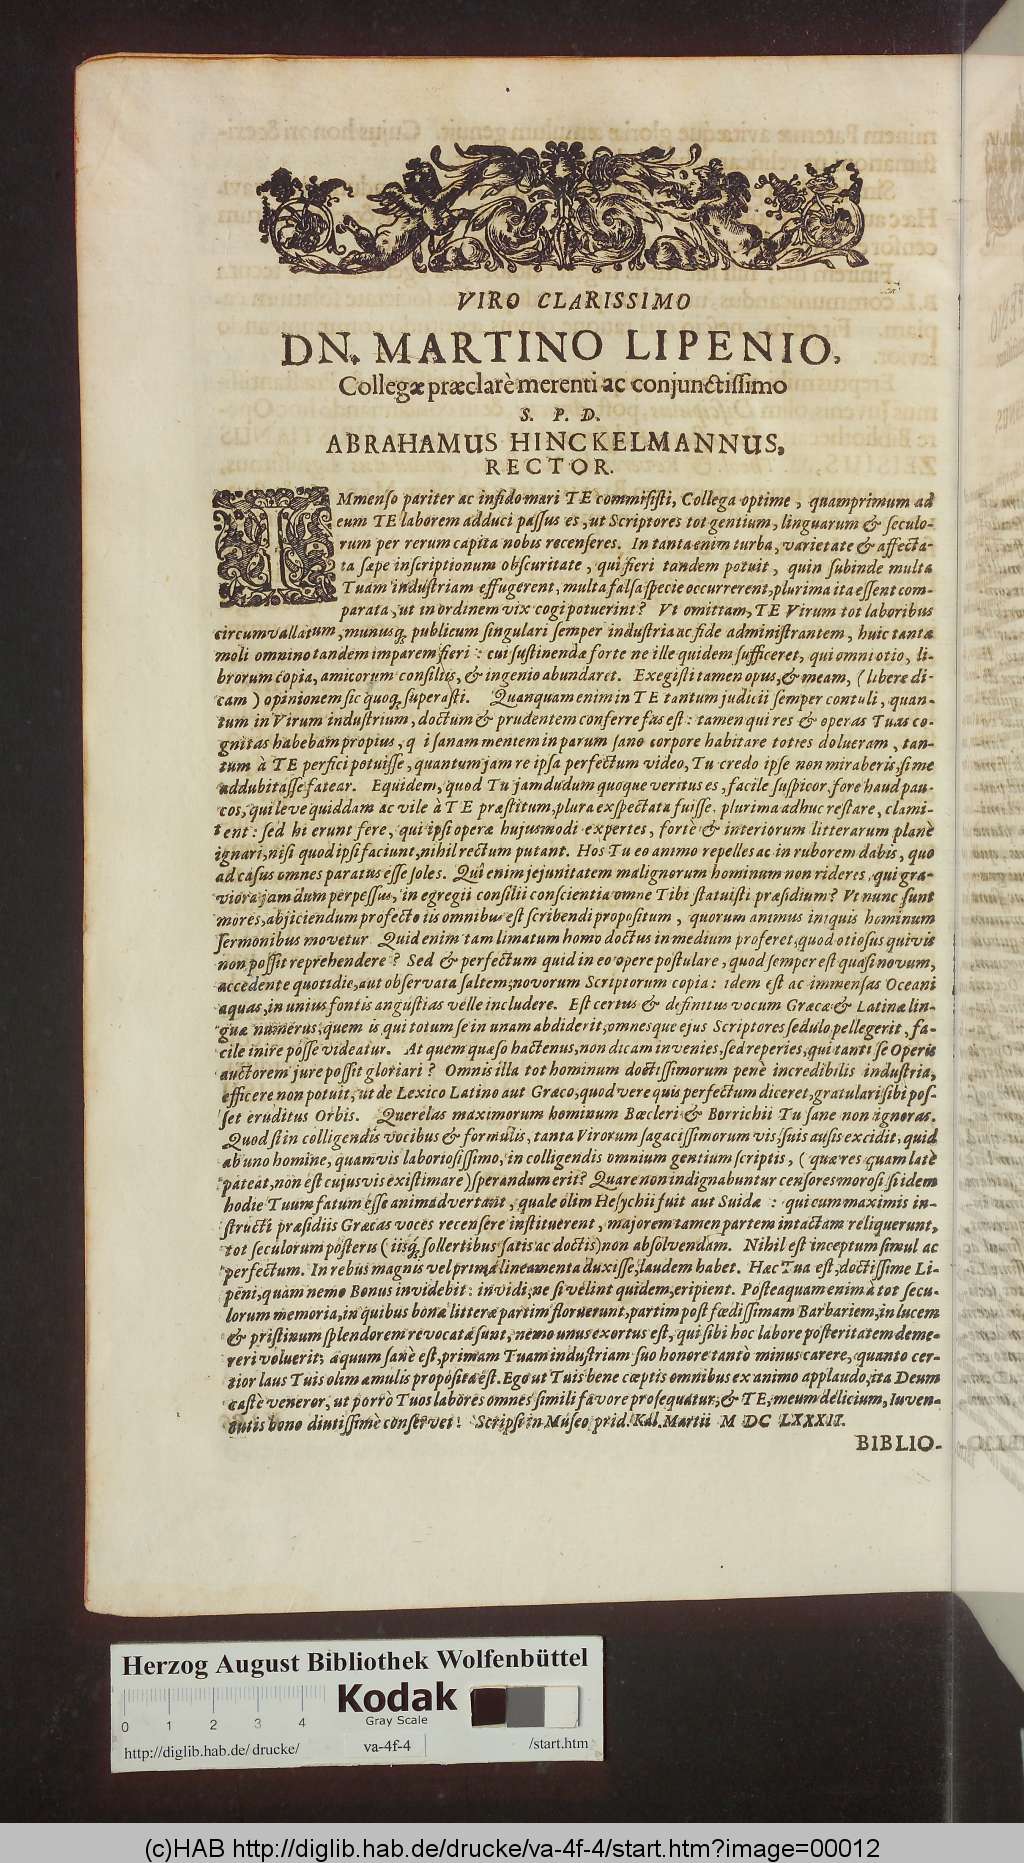 VIRO CLARISSIMO
DN. MARTINO LIPENIO,
Collegæ præclarè merenti ac conjunctissimo
S. P. D.
ABRAHAMUS HINCKELMANNUS,
RECTOR.
IMmenso pariter ac infido mari TE commisisti, Collega optime, quamprimum ad
eum TE laborem adduci passus es, ut Scriptores tot gentium, linguarum & seculo-
rum per rerum capita nobis recenseres. In tanta enim turba, varietate & affecta-
ta sæpe inscriptionum obscuritate, qui fieri tandem potuit, quin subinde multa
Tuam industriam effugerent, multa falsa specie occurrerent, plurima ita essent com-
parata, ut in ordinem vix cogi potuerint? Vt omittam, TE Virum tot laboribus
circumvallatum, munusq; publicum singulari semper industria ac fide administrantem, huic tantæ
moli omnino tandem imparem fieri: cui sustinendæ forte ne ille quidem sufficeret, qui omni otio, li-
brorum copia, amicorum consiliis, & ingenio abundaret. Exegisti tamen opus, & meam, (libere di-
cam) opinionem sic quoq; superasti. Quanquam enim in TE tantum judicii semper contuli, quan-
tum in Virum industrium, doctum & prudentem conferre fas est: tamen qui res & operas Tuas co-
gnitas habebam propius, q i sanam mentem in parum sano corpore habitare toties dolueram, tan-
tum à TE perfici potuisse, quantum jam re ipsa perfectum video, Tu credo ipse non miraberis, si me
addubitasse fatear. Equidem, quod Tu jamdudum quoque veritus es, facile suspicor, fore haud pau-
cos, qui leve quiddam ac vile à TE præstitum, plura exspectata fuisse, plurima adhuc restare, clami-
tent: sed hi erunt fere, qui ipsi operæ hujusmodi expertes, fortè & interiorum litterarum planè
ignari, nisi quod ipsi faciunt, nihil rectum putant. Hos Tu eo animo repelles ac in ruborem dabis, quo
ad casus omnes paratus esse soles. Qui enim jejunitatem malignorum hominum non rideres, qui gra-
viora jam dum perpessus, in egregii consilii conscientia omne Tibi statuisti præsidium? Vt nunc sunt
mores, abjiciendum profecto iis omnibus est scribendi propositum, quorum animus iniquis hominum
sermonibus movetur Quid enim tam limatum homo doctus in medium proferet, quod otiosus quivis
non possit reprehendere? Sed & perfectum quid in eo opere postulare, quod semper est quasi novum,
accedente quotidie, aut observata saltem, novorum Scriptorum copia: idem est ac immensas Oceani
aquas, in unius fontis angustias velle includere. Est certus & definitus vocum Græcæ & Latinæ lin-
guæ numerus, quem is qui totum se in unam abdiderit, omnesque ejus Scriptores sedulo pellegerit, fa-
cile inire posse videatur. At quem quæso hactenus, non dicam invenies, sed reperies, qui tanti se Operis
auctorem jure possit gloriari? Omnis illa tot hominum doctissimorum penè incredibilis industria,
efficere non potuit, ut de Lexico Latino aut Græco, quod vere quis perfectum diceret, gratulari sibi pos-
set eruditus Orbis. Querelas maximorum hominum Bœcleri & Borrichii Tu sane non ignoras.
Quod si in colligendis vocibus & formulis, tanta Virorum sagacissimorum vis, suis ausis excidit, quid
ab uno homine, quamvis laboriosissimo, in colligendis omnium gentium scriptis, (quæ res quam latè
pateat, non est cujusvis existimare) sperandum erit? Quare non indignabuntur censores morosi, si idem
hodie Tuum fatum esse animadvertant, quale olim Hesychii fuit aut Suidæ: qui cum maximis in-
structi præsidiis Græcas voces recensere instituerent, majorem tamen partem intactam reliquerunt,
tot seculorum posteris (iisq; sollertibus satis ac doctis) non absolvendam. Nihil est inceptum simul ac
perfectum. In rebus magnis vel prima lineamenta duxisse, laudem habet. Hæc Tua est, doctissime Li-
peni, quam nemo Bonus invidebit: invidi, ne si velint quidem, eripient. Posteaquam enim à tot secu-
lorum memoria, in quibus bonæ litteræ partim floruerunt, partim post fœdissimam Barbariem, in lucem
& pristinum splendorem revocatæ sunt, nemo unus exortus est, qui sibi hoc labore posteritatem deme-
reri voluerit; æquum sanè est, primam Tuam industriam suo honore tantò minus carere, quanto cer-
tior laus Tuis olim æmulis proposita est. Ego ut Tuis bene cœptis omnibus ex animo applaudo, ita Deum
castè veneror, ut porrò Tuos labores omnes simili favore prosequatur, & TE, meum delicium, Iuven-
tutis bono diutissime conservet! Scripsi in Museo prid. Kal. Martii M DC LXXXII.
BIBLIO-
Herzog August Bibliothek Wolfenbüttel
Kodak
Gray Scale
0 1 2 3 4
http://diglib.hab.de/drucke/ va-4f-4 /start.htm
(c)HAB http://diglib.hab.de/drucke/va-4f-4/start.htm?image=00012